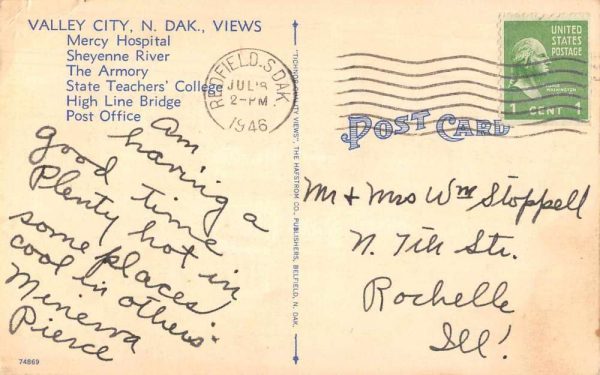 VALLEY CITY, N. DAK., VIEWS
Mercy Hospital
Sheyenne River
The Armory
State Teachers' College
High Line Bridge
Post Office
am
having a
good time
Plenty hot in
some places
cool in others.
Minerva
Pierce
74869
"TICHNOR QUALITY VIEWS", THE HAFSTROM CO., PUBLISHERS, BELFIELD, N. DAK.
REDFIELD, S. DAK.
JUL
2-PM
1946
POST CARD
UNITED
STATES
POSTAGE
WASHINGTON
1 CENT 1
Mr & Mrs Wm Stoppell
N. 7th Str.
Rochelle
Ill!